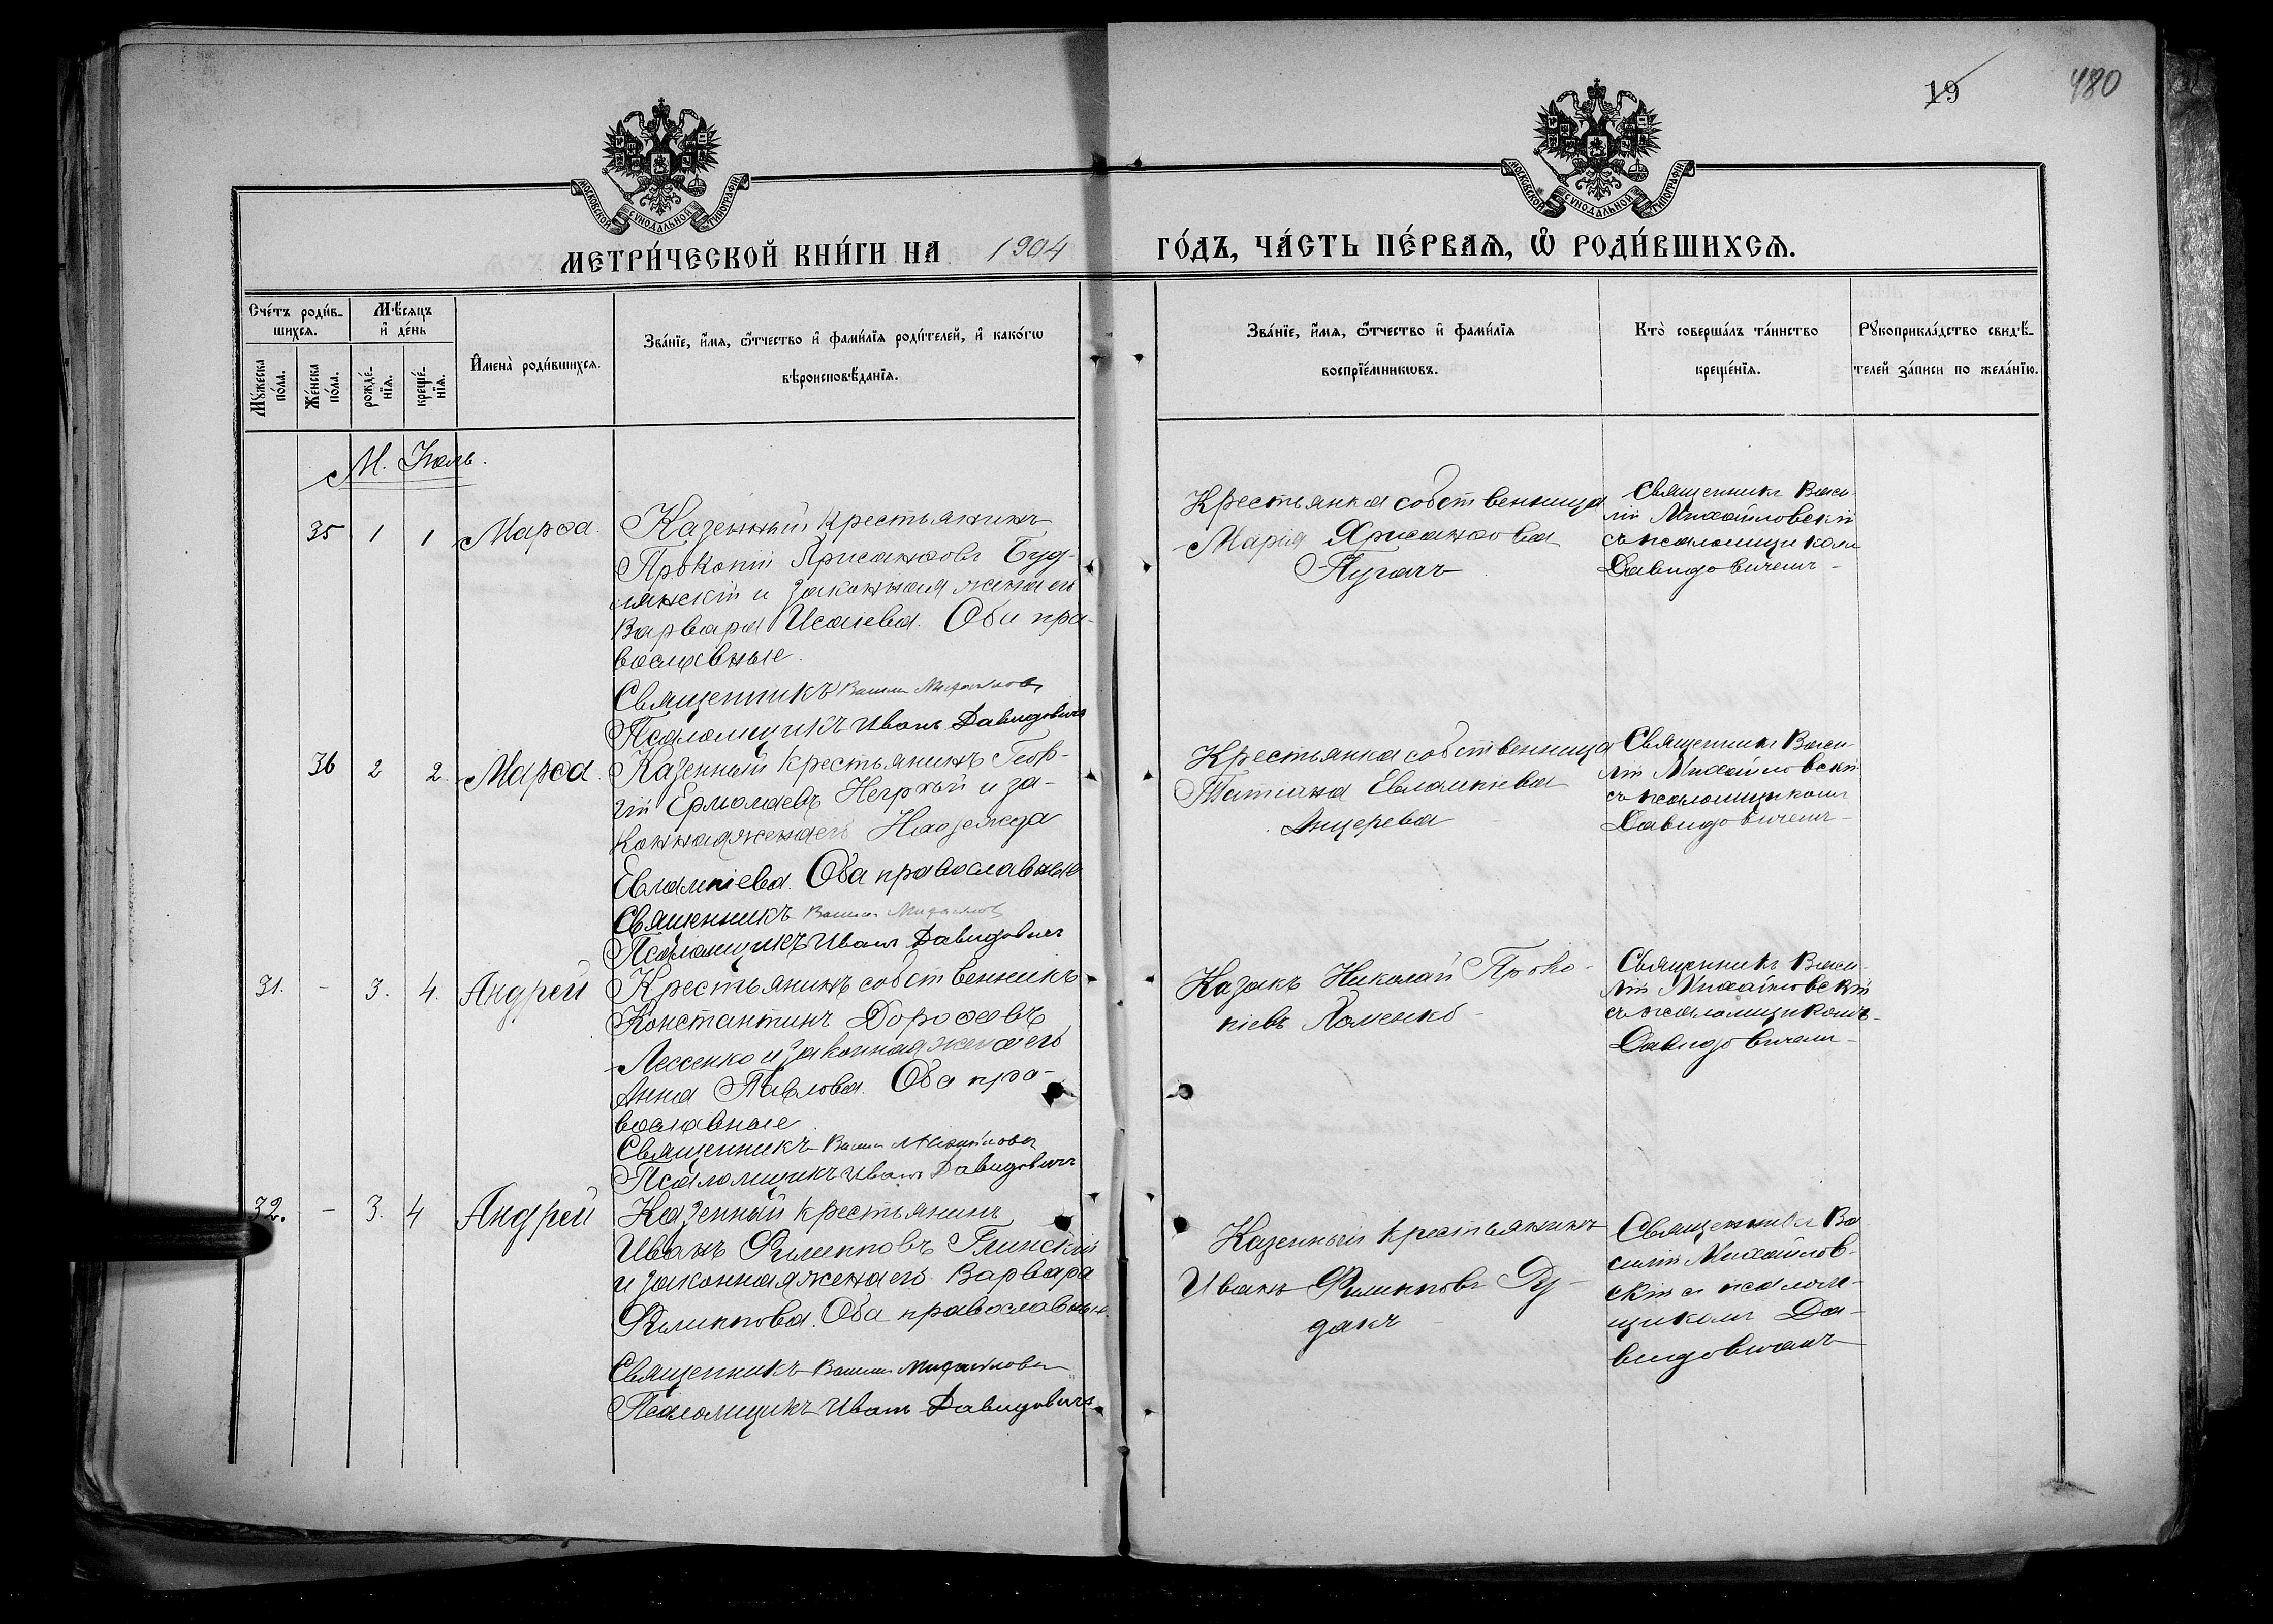 19
480
МОСКОВСКОЙ СѴНОДАЛЬНОЙ ТИПОГРАФІИ
МОСКОВСКОЙ СѴНОДАЛЬНОЙ ТИПОГРАФІИ
МЕТРИ́ЧЕСКОЙ КНИ́ГИ НА 1904 ГО́ДЪ, ЧА́СТЬ ПЕ́РВАѦ, Ѽ РОДИ́ВШИХСѦ.
Сче́тъ роди́в-
шихсѧ.
Мꙋ́жеска
по́ла.
Же́нска
по́ла.
Мѣ́сѧцъ
и҆ де́нь
рожде́-
нїѧ.
креще́-
нїѧ.
И҆мена̀ роди́вшихсѧ.
Зва́нїе, и҆́мѧ, ѻ҆́тчество и҆ фами́лїѧ роди́телей, и҆ како́гѡ
вѣроисповѣ́данїѧ.
Зва́нїе, и҆́мѧ, ѻ҆́тчество и҆ фами́лїѧ
воспрїе́мникѡвъ.
Кто̀ соверша́лъ та́инство
креще́нїѧ.
Рꙋкоприкла́дство свидѣ́-
телей за́писи по жела́нїю.
М. Іюль.
35 1 1 Марѳа.
Казенный крестьянинъ
Прокопій Хрисанѳовъ Буд-
лянскій и законная жена его
Варвара Исаіева. Оба пра-
вославные.
Священникъ Василій Михайловск
Псаломщикъ Иванъ Давидовичъ
Крестьянка собственница
Марія Хрисанѳова
Пугачъ
Священникъ Васи-
лій Михайловскій
съ псаломщикомъ
Давидовичемъ
36 2 2. Марѳа.
Казенный крестьянинъ Геор-
гій Ермолаевъ Негрхый и за-
конная жена его Надежда
Евлампіева. Оба православные
Священникъ Василій Михайловск
Псаломщикъ Иванъ Давидовичъ
Крестьянка собственница
Татіана Евлампіева
Анцерева
Священникъ Васи-
лій Михайловскій
съ псаломщикомъ
Давидовичемъ
31. - 3. 4. Андрей
Крестьянинъ собственникъ
Константинъ Дороѳеевъ
Лессенко и законная жена его
Анна Павлова. Оба пра-
вославные.
Священникъ Василій Михайловск
Псаломщикъ Иванъ Давидовичъ
Казакъ Николай Проко-
піевъ Хоменко
Священникъ Васи-
лій Михайловскій
съ псаломщикомъ
Давидовичемъ
32. - 3. 4 Андрей
Казенный крестьянинъ
Иванъ Филипповъ Глинскій
и законная жена его Варвара
Филиппова. Оба православные.
Священникъ Василій Михайловск
Псаломщикъ Иванъ Давидовичъ
Казенный крестьянинъ
Иванъ Филипповъ Ру-
дакъ
Священникъ Ва
силій Михайлов-
скій съ псалом-
щикомъ Да-
видовичемъ